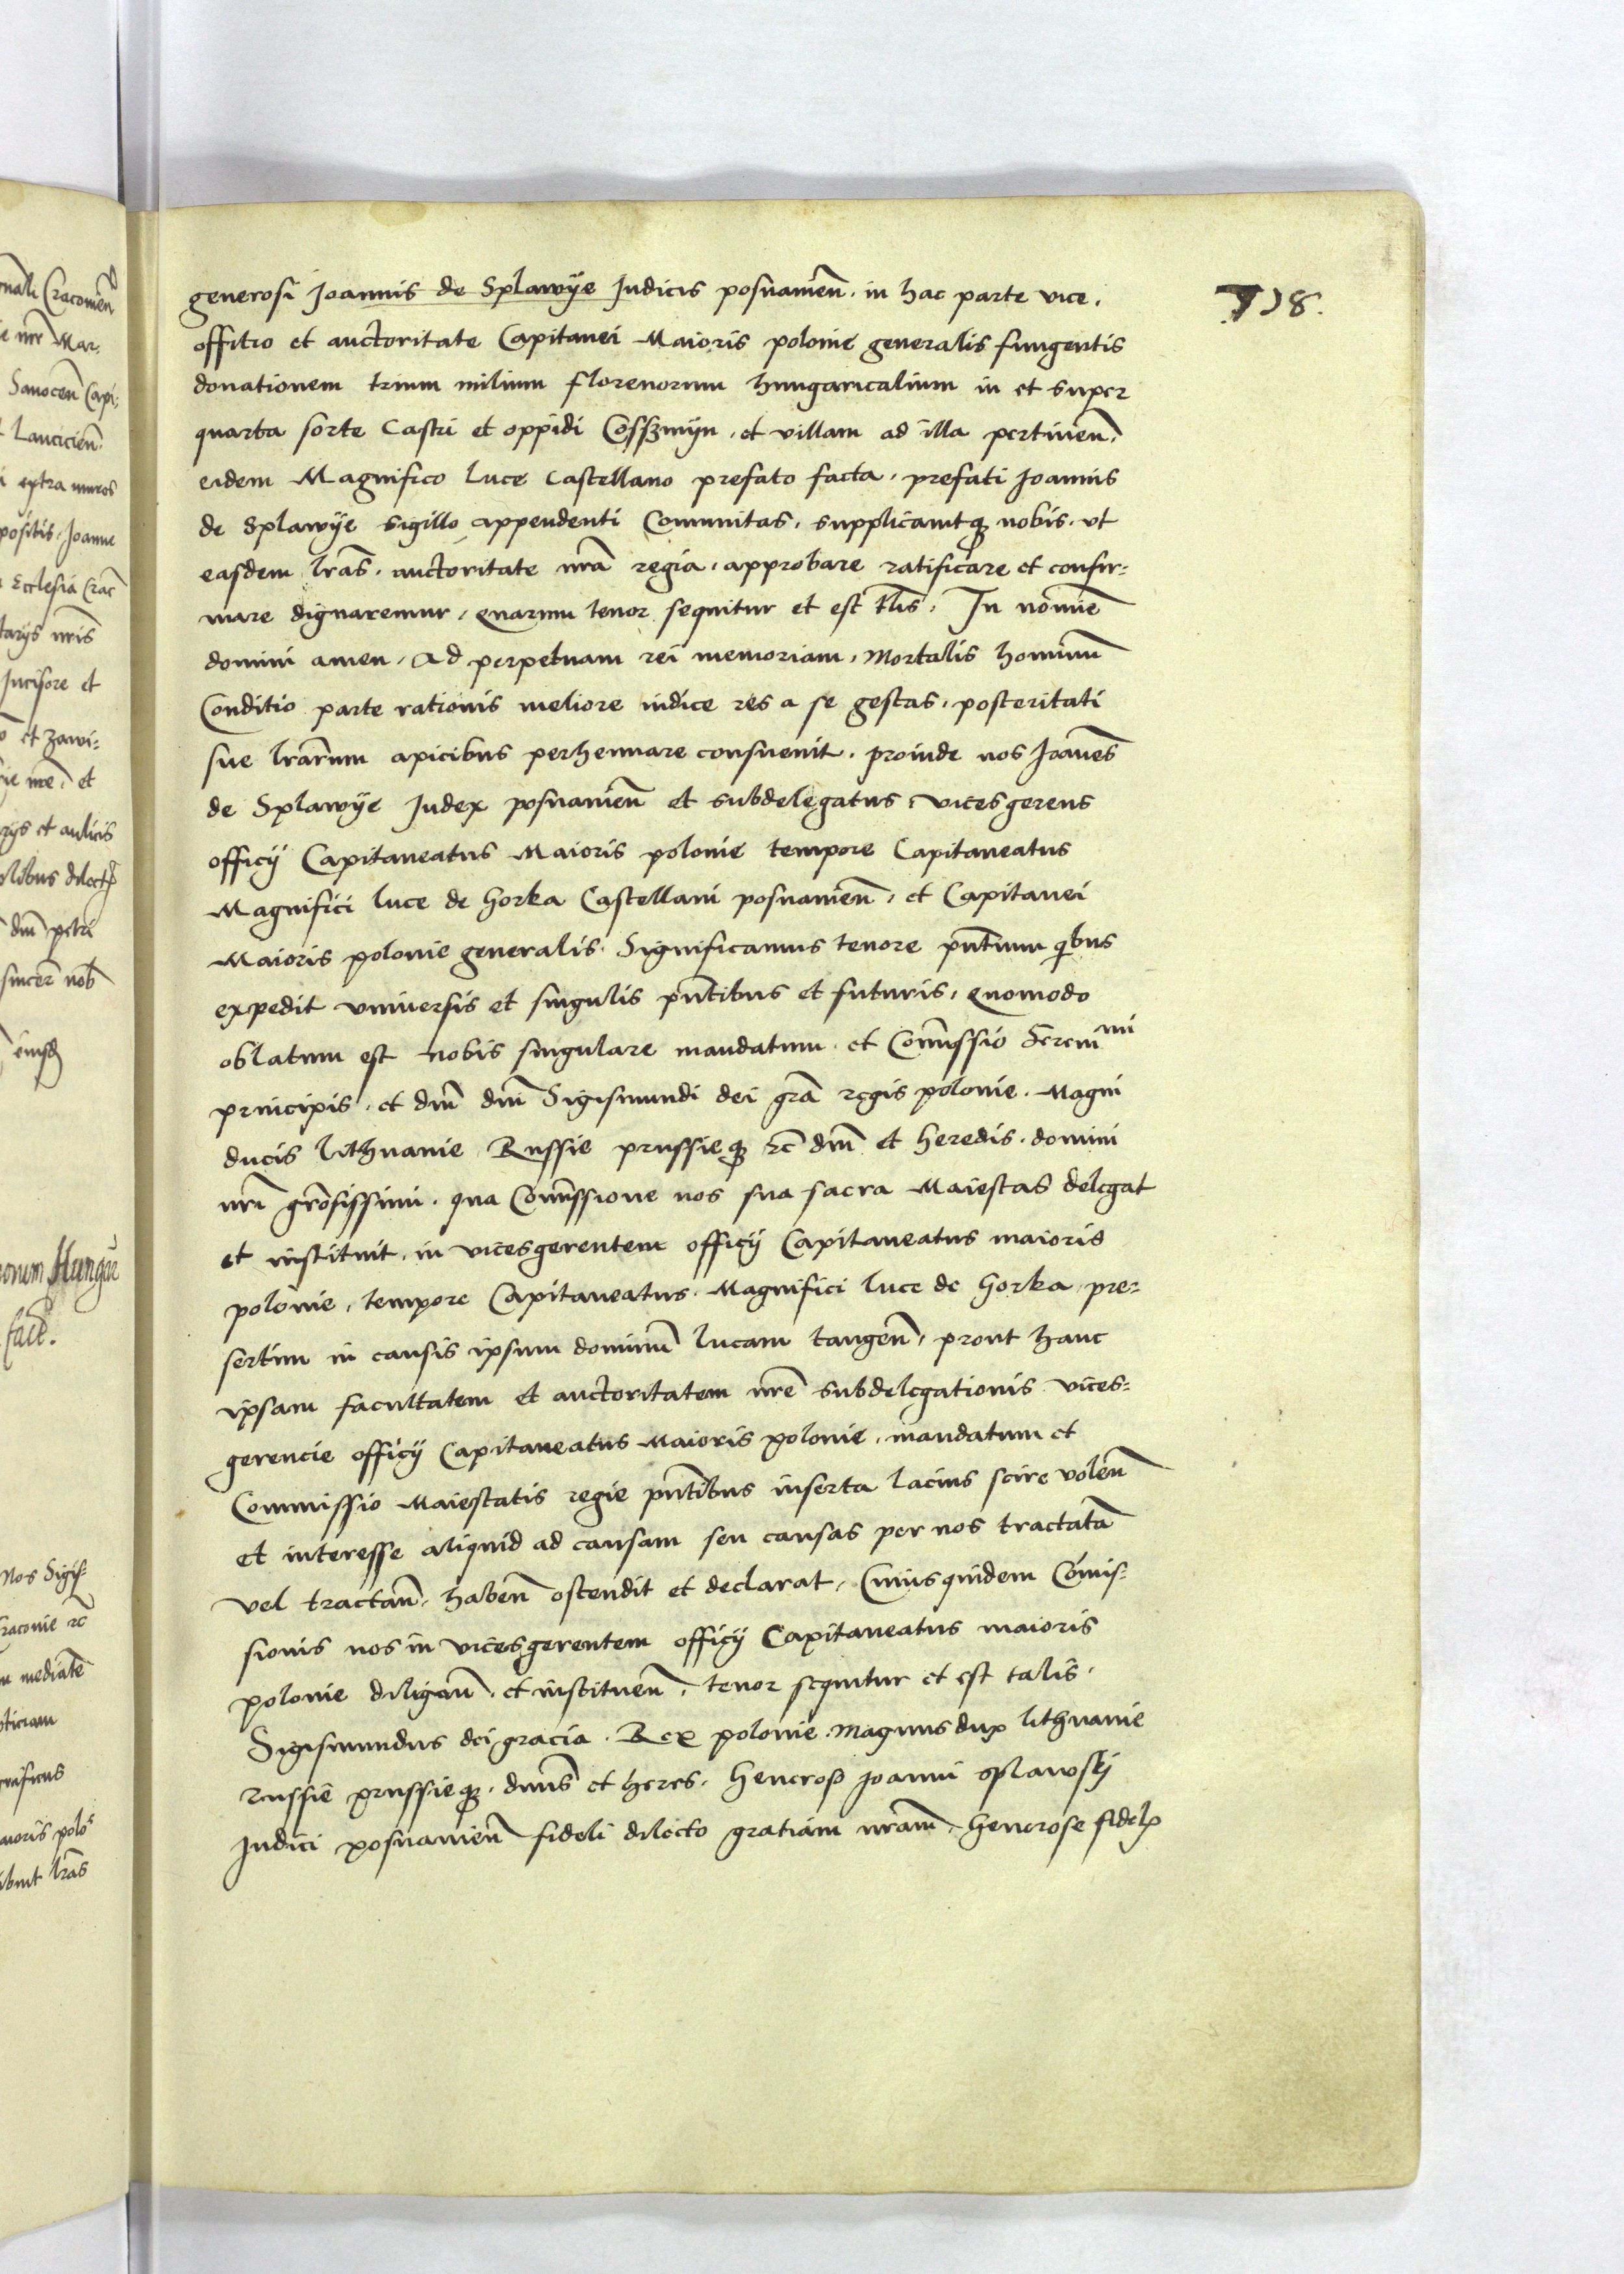 718.
generosi Joannis de Splawÿe Judicis posnanieñ. in hac parte vice,
offitio et auctoritate Capitanei Maioris polonie generalis fungentis
donationem trium milium florenorum hungaricalium in et super
quarta sorte Castri et oppidi Cosszmÿn, et villam ad illa pertineñ,
eidem Magnifico luce Castellano prefato facta, prefati Joannis
de Splawÿe sigillo appendenti Comunitas, supplicavitqꝫ nobis, vt
easdem lr̃as, auctoritate nr̃a regia, approbare ratificare et confir-
mare dignaremur, quarum tenor sequitur et est tl̃is, In nomine
domini amen, Ad perpetuam rei memoriam, Mortalis hominũ
Conditio parte rationis meliore iudice res a se gestas, posteritati
sue lr̃arum apicibus perhennare consuevit, proinde nos Joañes
de Splawÿe Judex posnanieñ et subdelegatus, vicesgerens
officÿ Capitaneatus Maioris polonie tempore Capitaneatus
Magnifici luce de Gorka Castellani posnanieñ, et Capitanei
Maioris polonie generalis, Significamus tenore pñtium qibus
expedit vniversis et singulis pñtibus et futuris, quomodo
oblatum est nobis singulare mandatum et Com̃issio Serenimi
principis, et dñi dñi Sigismundi dei gr̃a regis polonie, Magni
ducis lithuanie Russie prussieqꝫ ꝛc̃ dñi et heredis, domini
nr̃i gr̃osissimi, qua Com̃issione nos sua sacra Maiestas delegat
et instituit, in vicesgerentem officÿ Capitaneatus maioris
polonie, tempore Capitaneatus, Magnifici luce de Gorka pre-
sertim in causis ipsum dominũ lucam tangeñ, prout hanc
ipsam facultatem et auctoritatem nr̃e subdelegationis vices-
gerencie officÿ Capitaneatus Maioris polonie, mandatum et
Commissio Maiestatis regie pñtibus inserta lacius scire voleñ
et interesse aliquid ad causam seu causas per nos tractatã
vel tractañ, habeñ ostendit et declarat, Cuiusquidem Com̃is-
sionis nos in vicesgerentem officÿ Capitaneatus maioris
polonie diligeñ, et institueñ, tenor sequitur et est talis,
Sigismundus dei gracia, Rex polonie, Magnus dux lithuanie
russie prussieqꝫ, dñus et heres, Generoso Joanni splawskÿ
Judici posnanieñ fideli dilecto gratiam nr̃am, Generose fidelꝭ
Cracovieñ
Mar-
Sanoceñ Capi-
Lancicieñ
extra muros
positis, Joanne
Ecclesia Crac̃
nr̃is
Incisore et
et Zawi-
et
et aulicis
dñi petri
sincer̃ nob̃
eiusdꝫ
Hungar̃
fact̃.
Nos Sigis-
ꝛc̃
mediañte
lr̃as